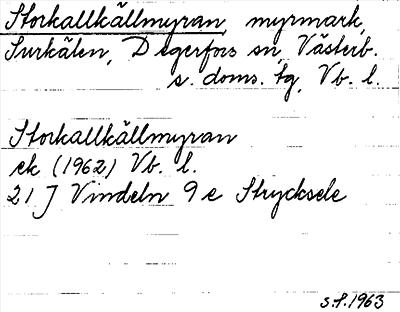 Storkallkällmyran, myrmark,
Surkälen, Degerfors sn, Västerb.
s. doms. tg, Vb. l.
Storkallkällmyran
ek (1962) Vb. l.
21 J Vindeln 9 e Strycksele
s.f. 1963